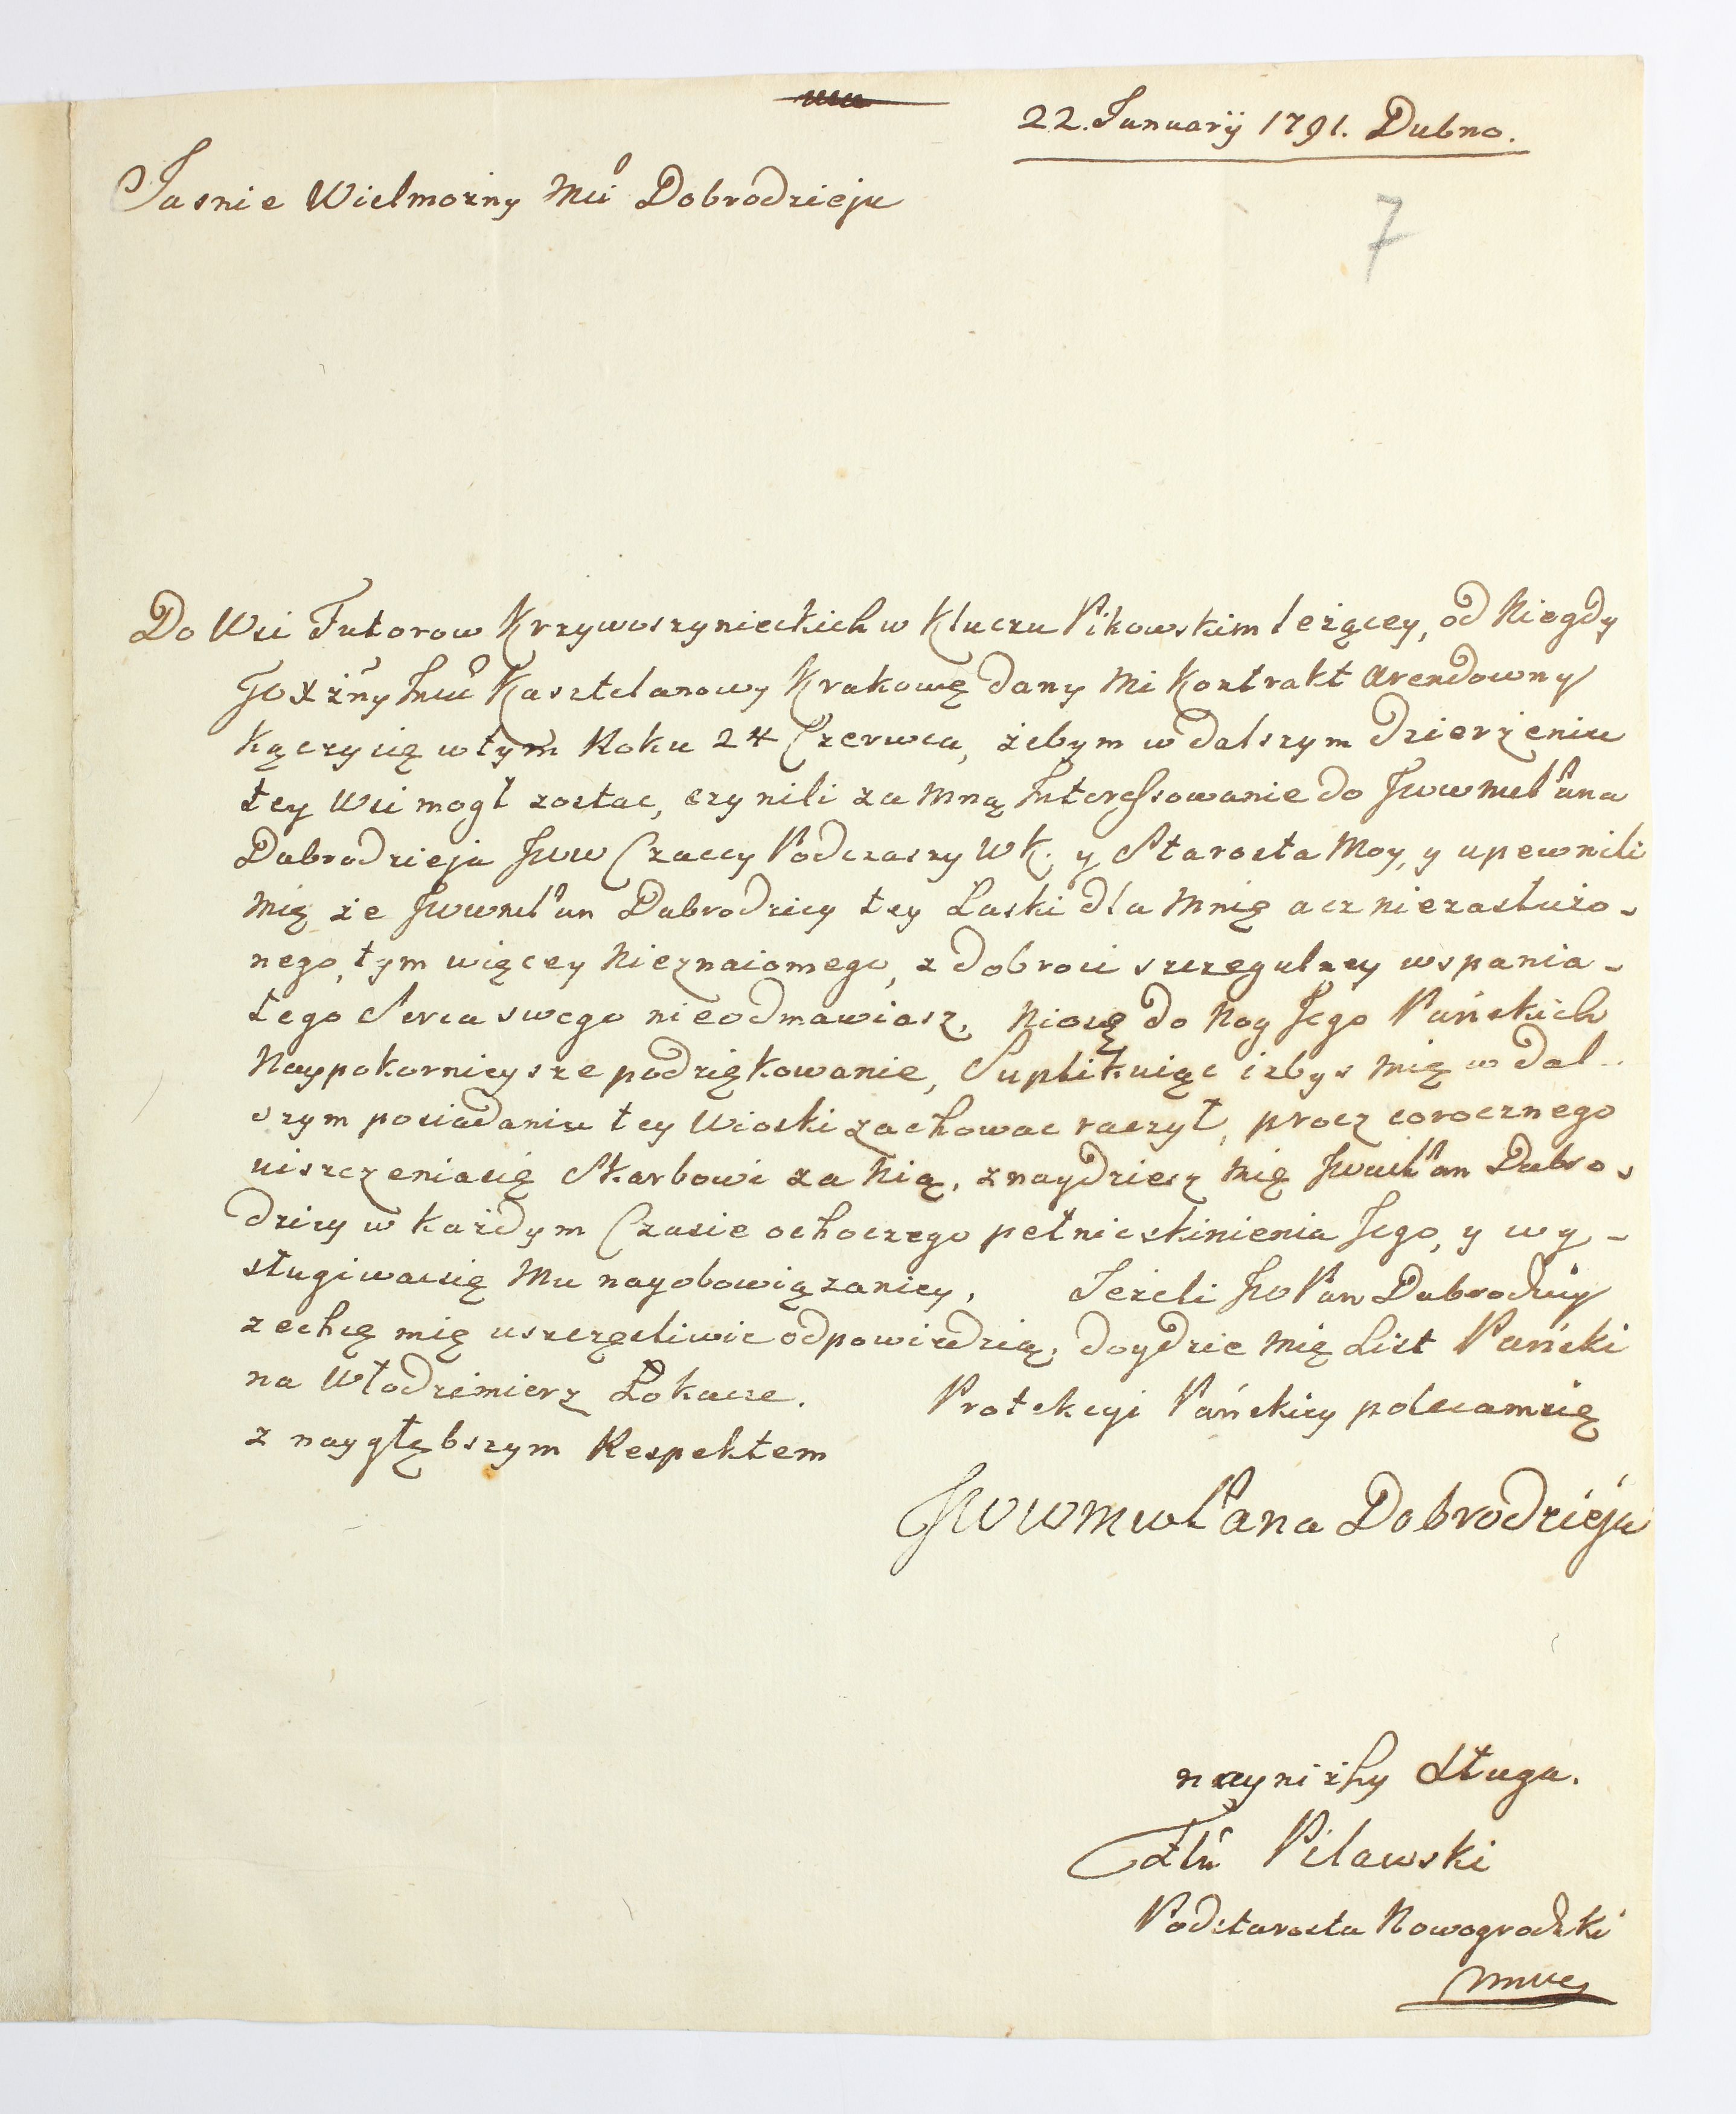 22. Januarij 1791. Dubno.
Jasnie Wielmożny Mci Dobrodzieju
7
Do Wsi Futorow Krzywoszynieckich w Kluczu Pikowskim leżącey, od Niegdy
Jmci Kasztelanowy Krakowę dany Mi Kontrakt Arendowny
kączy się w tym Roku 24 Czerwca, żebym w dalszym Dzierżeniu
tey Wsi mogł zostac, czynili za Mną Interessowanie do JWWMPana
Dobrodzieja JWW Czaccy Podczaszy WK. y Starosta Moy, y upewnili
Mię że JWWMPan Dobrodziey tey Łaski dla Mnię acz niezasłużo-
nego, tym więcey Nieznaiomego, z dobroci szczegulney wspania-
łego Serca swego nieodmawiasz, Niosę do Nog Jego Pańskich
Naypokornieysze podziękowanie, Suplikuiąc izbys Mię w dal-
szym posiadaniu tey Wioski zachowac raczył, procz corocznego
uiszczenia się Skarbowi za Nią, znaydziesz Mię JWMPan Dobro-
dziey w każdym Czasie ochoczego pełnic skinienia Jego, y wy-
sługiwac się Mu nayobowiązaniey, Jeżeli JWPan Dobrodziey
zechcę mię uszczęsliwic odpowiedzią, doydzie Mię List Pański
na Włodzimierz Łokacze. Protekcyi Pańskiey polecam się
z naygłębszym Respektem
JWWMWPana Dobrodzieja
nayniższy Sługa.
Pilawski
Podstarosta Nowogrodzki
mpp